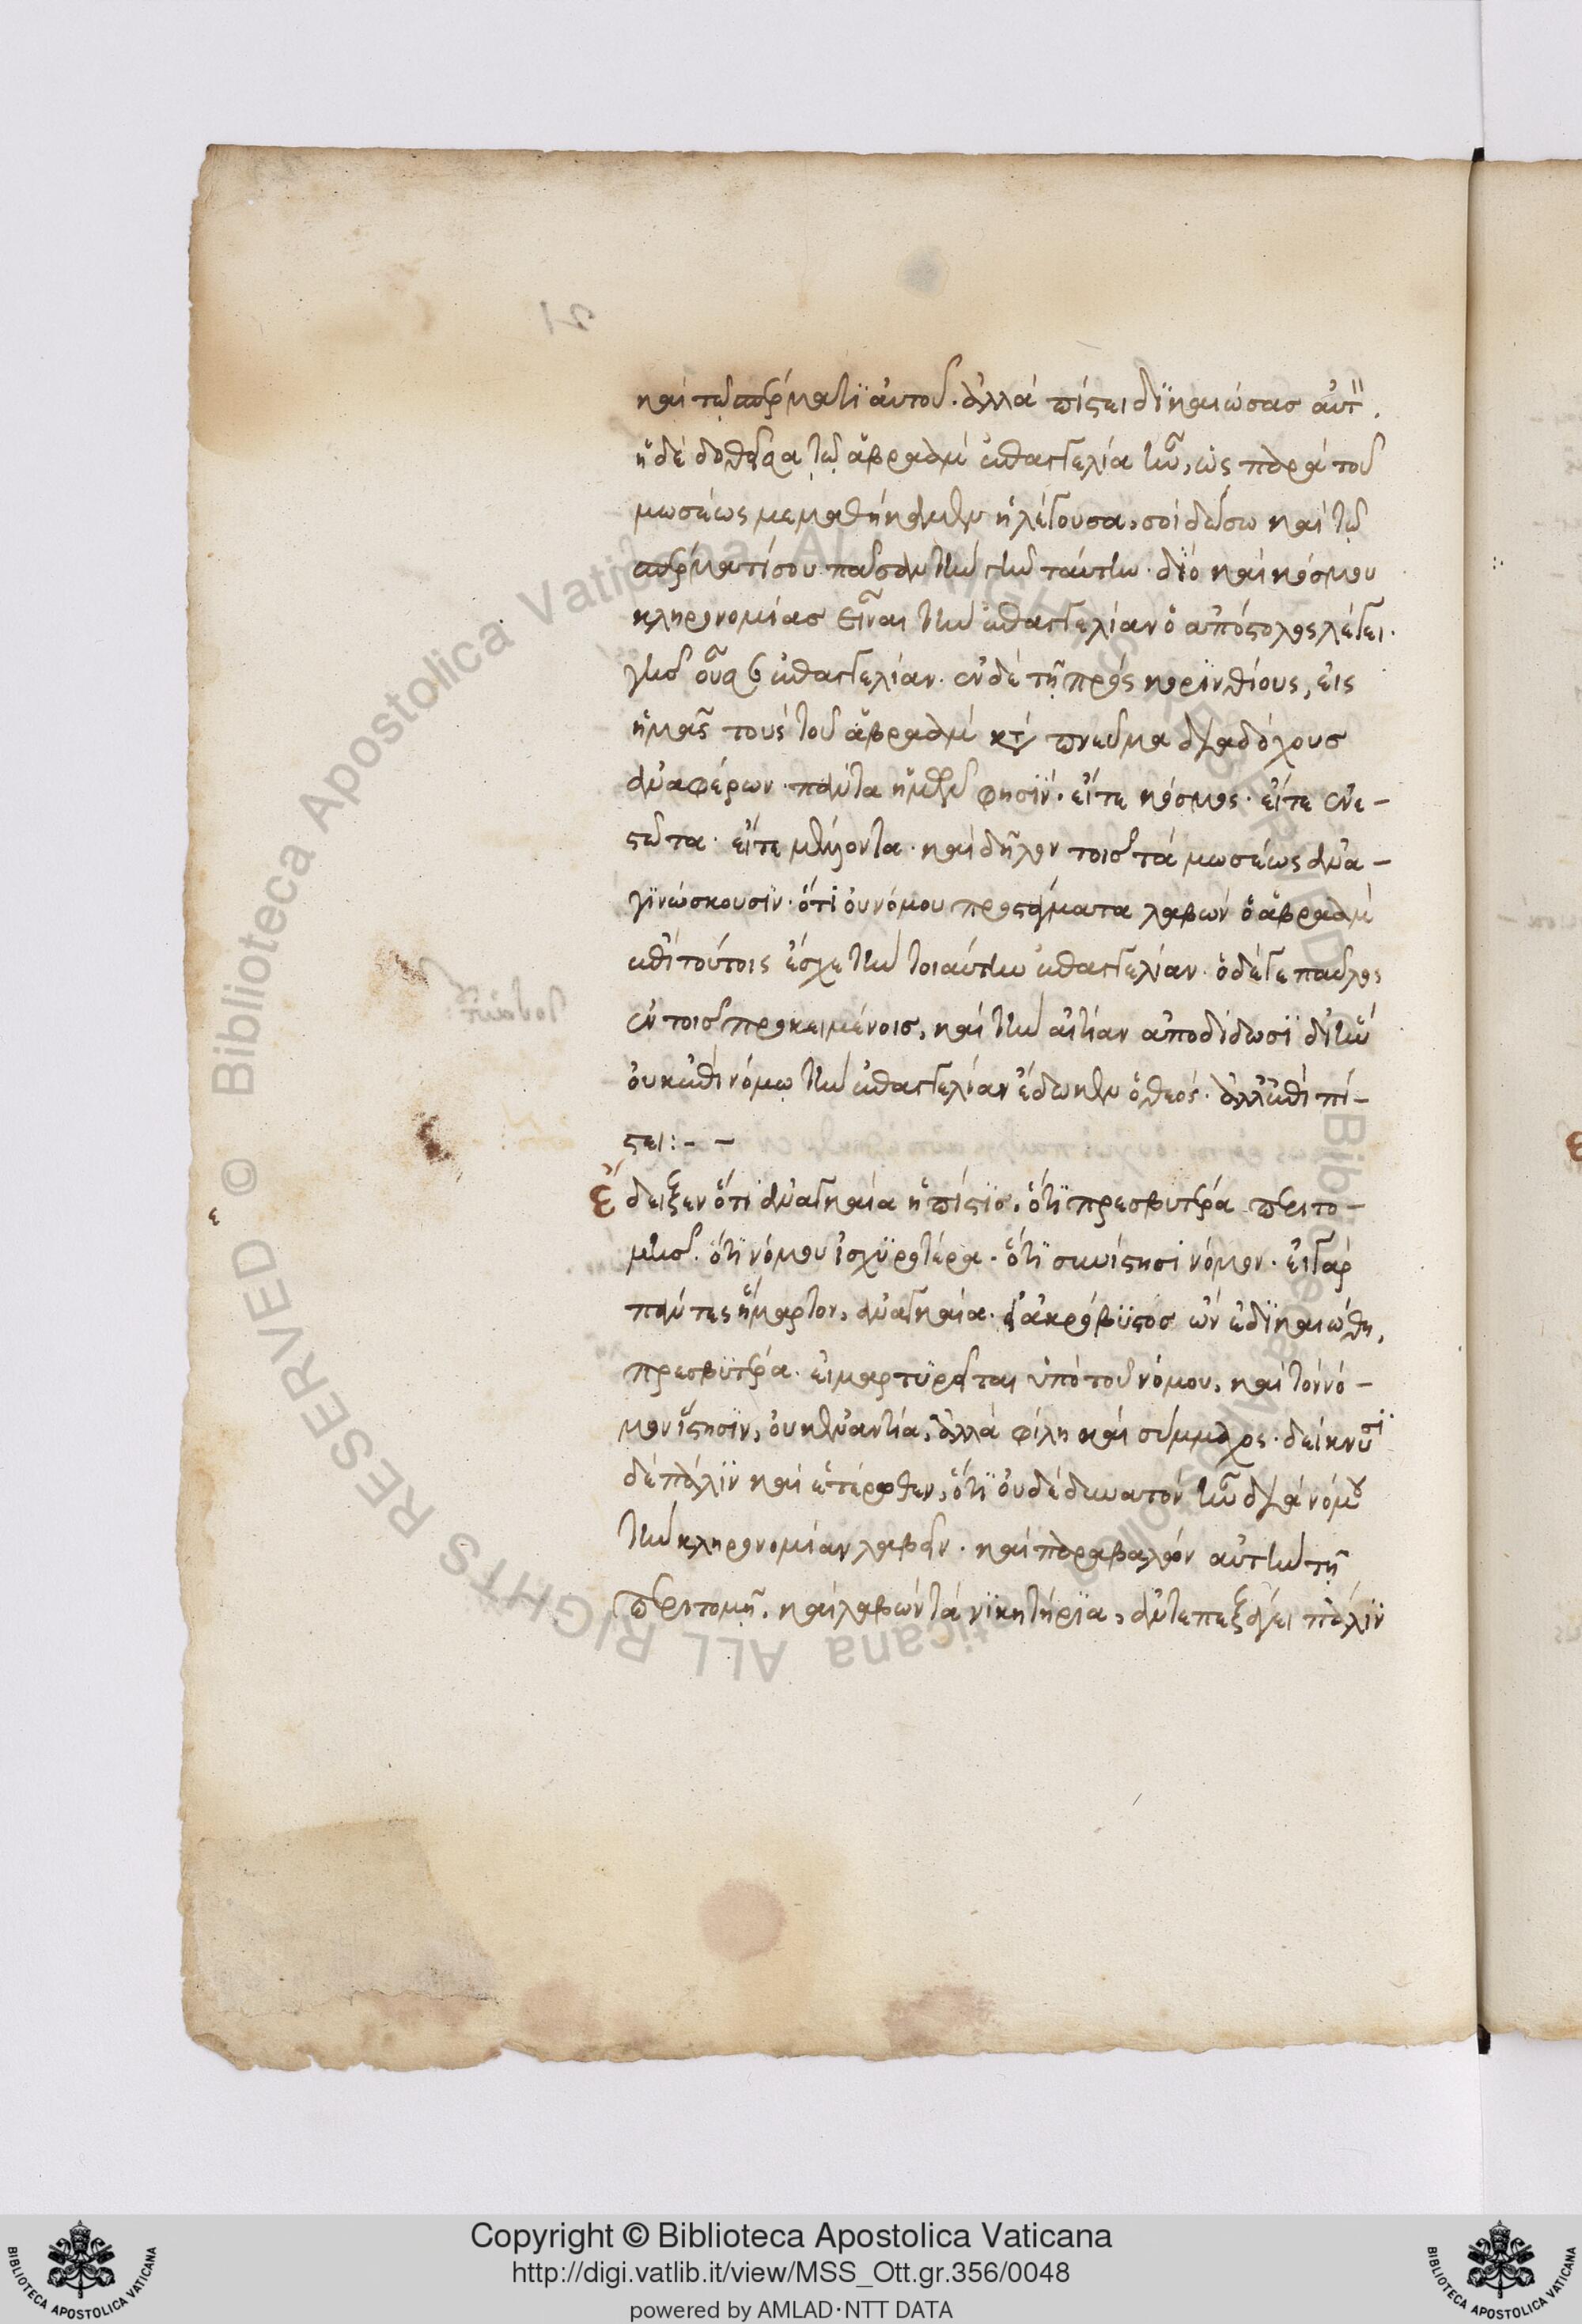 καὶ τῷ σπέρματι αὐτοῦ. ἀλλὰ πίστει δικαιώσας αὐτ.
ἡ δὲ δοθεῖσα τῷ ἀβραὰμ ἐπαγγελία ἦν, ὡς παρὰ τοῦ
μωσέως μεμαθήκαμεν ἡ λέγουσα, σοὶ δώσω καὶ τῷ
σπέρματί σου πᾶσαν τὴν γῆν ταύτην. διὸ καὶ κόσμου
κληρονομίας εἶναι τὴν ἐπαγγελίαν ὁ ἀπόστολος λέγει.
γῆς οὖσ ἐπαγγελίαν. ἐν δὲ τῇ πρὸς κορινθίους, εἰς
ἡμᾶς τοὺς τοῦ ἀβραὰμ κτ πνεῦμα διαδόχους
ἀναφέρων. πάντα ἡμῶν φησίν. εἴτε κόσμος. εἴτε ἐνε-
στῶτα. εἴτε μέλλοντα. καὶ δῆλον τοῖς τὰ μωσέως ἀνα-
γινώσκουσιν. ὅτι οὐ νόμου προστάγματα λαβὼν ὁ ἀβραὰμ
ἐπὶ τούτοις ἔσχε τὴν τοιαύτην ἐπαγγελίαν. ὁ δέ γε παῦλος
ἐν τοῖς προκειμένοις, καὶ τὴν αἰτίαν ἀποδίδωσι δι ἣν
οὐκ ἐπὶ νόμῳ τὴν ἐπαγγελίαν ἔδωκεν ὁ θεός. ἀλλ ἐπὶ πί-
στει:- -
ἔδειξεν ὅτι ἀναγκαία ἡ πίστις, ὅτι πρεσβυτέρα περιτο-
μῆς. ὅτι νόμου ἰσχυροτέρα. ὅτι συνίστησι νόμον. εἰ γὰρ
πάντες ἥμαρτον, ἀναγκαία. εἰ ἀκρόβυστος ὢν ἐδικαιώθη,
πρεσβυτέρα. εἰ μαρτυρεῖται ὑπὸ τοῦ νόμου, καὶ τὸν νό-
μον ἵστησιν, οὐκ ἐναντία, ἀλλὰ φίλη καὶ σύμμαχος. δείκνυσι
δὲ πάλιν καὶ ἑτέρωθεν, ὅτι οὐδὲ δυνατὸν ἦν διὰ νόμου
τὴν κληρονομίαν λαβεῖν. καὶ παραβαλὼν αὐτὴν τῇ
περιτομῇ, καὶ λαβὼν τὰ νικητήρια, ἀντεπεξάγει πάλιν
ε
Copyright © Biblioteca Apostolica Vaticana
http://digi.vatlib.it/view/MSS_Ott.gr.356/0048
powered by AMLAD·NTT DATA
BIBLIOTECA APOSTOLICA VATICANA
BIBLIOTECA APOSTOLICA VATICANA